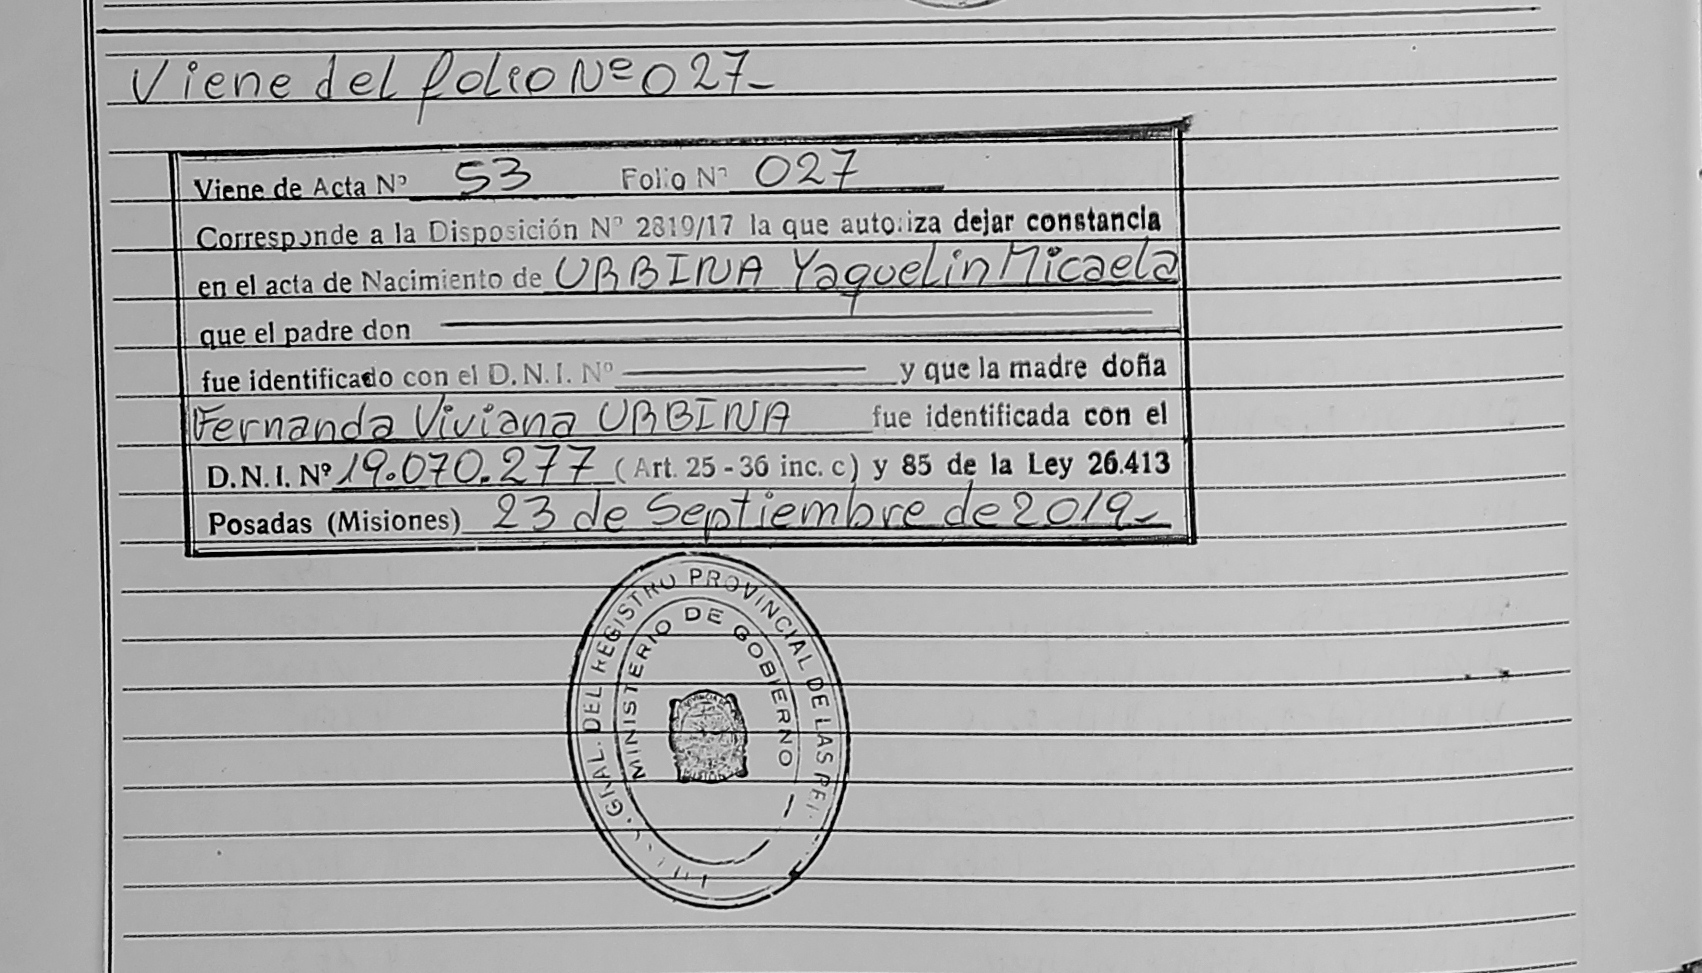 Viene del folio Nº 027-
Viene de Acta Nº 53 Folio Nº 027
Corresponde a la Disposición Nº 2819/17 la que autoriza dejar constancia
en el acta de Nacimiento de URBINA Yaquelin Micaela
que el padre don
fue identificado con el D.N.I. Nº y que la madre doña
Fernanda Viviana URBINA fue identificada con el
D.N.I. Nº 19.070.277 (Art. 25 - 36 inc. c) y 85 de la Ley 26.413
Posadas (Misiones) 23 de Septiembre de 2019-
GRAL. DEL REGISTRO PROVINCIAL DE LAS PE
MINISTERIO DE GOBIERNO